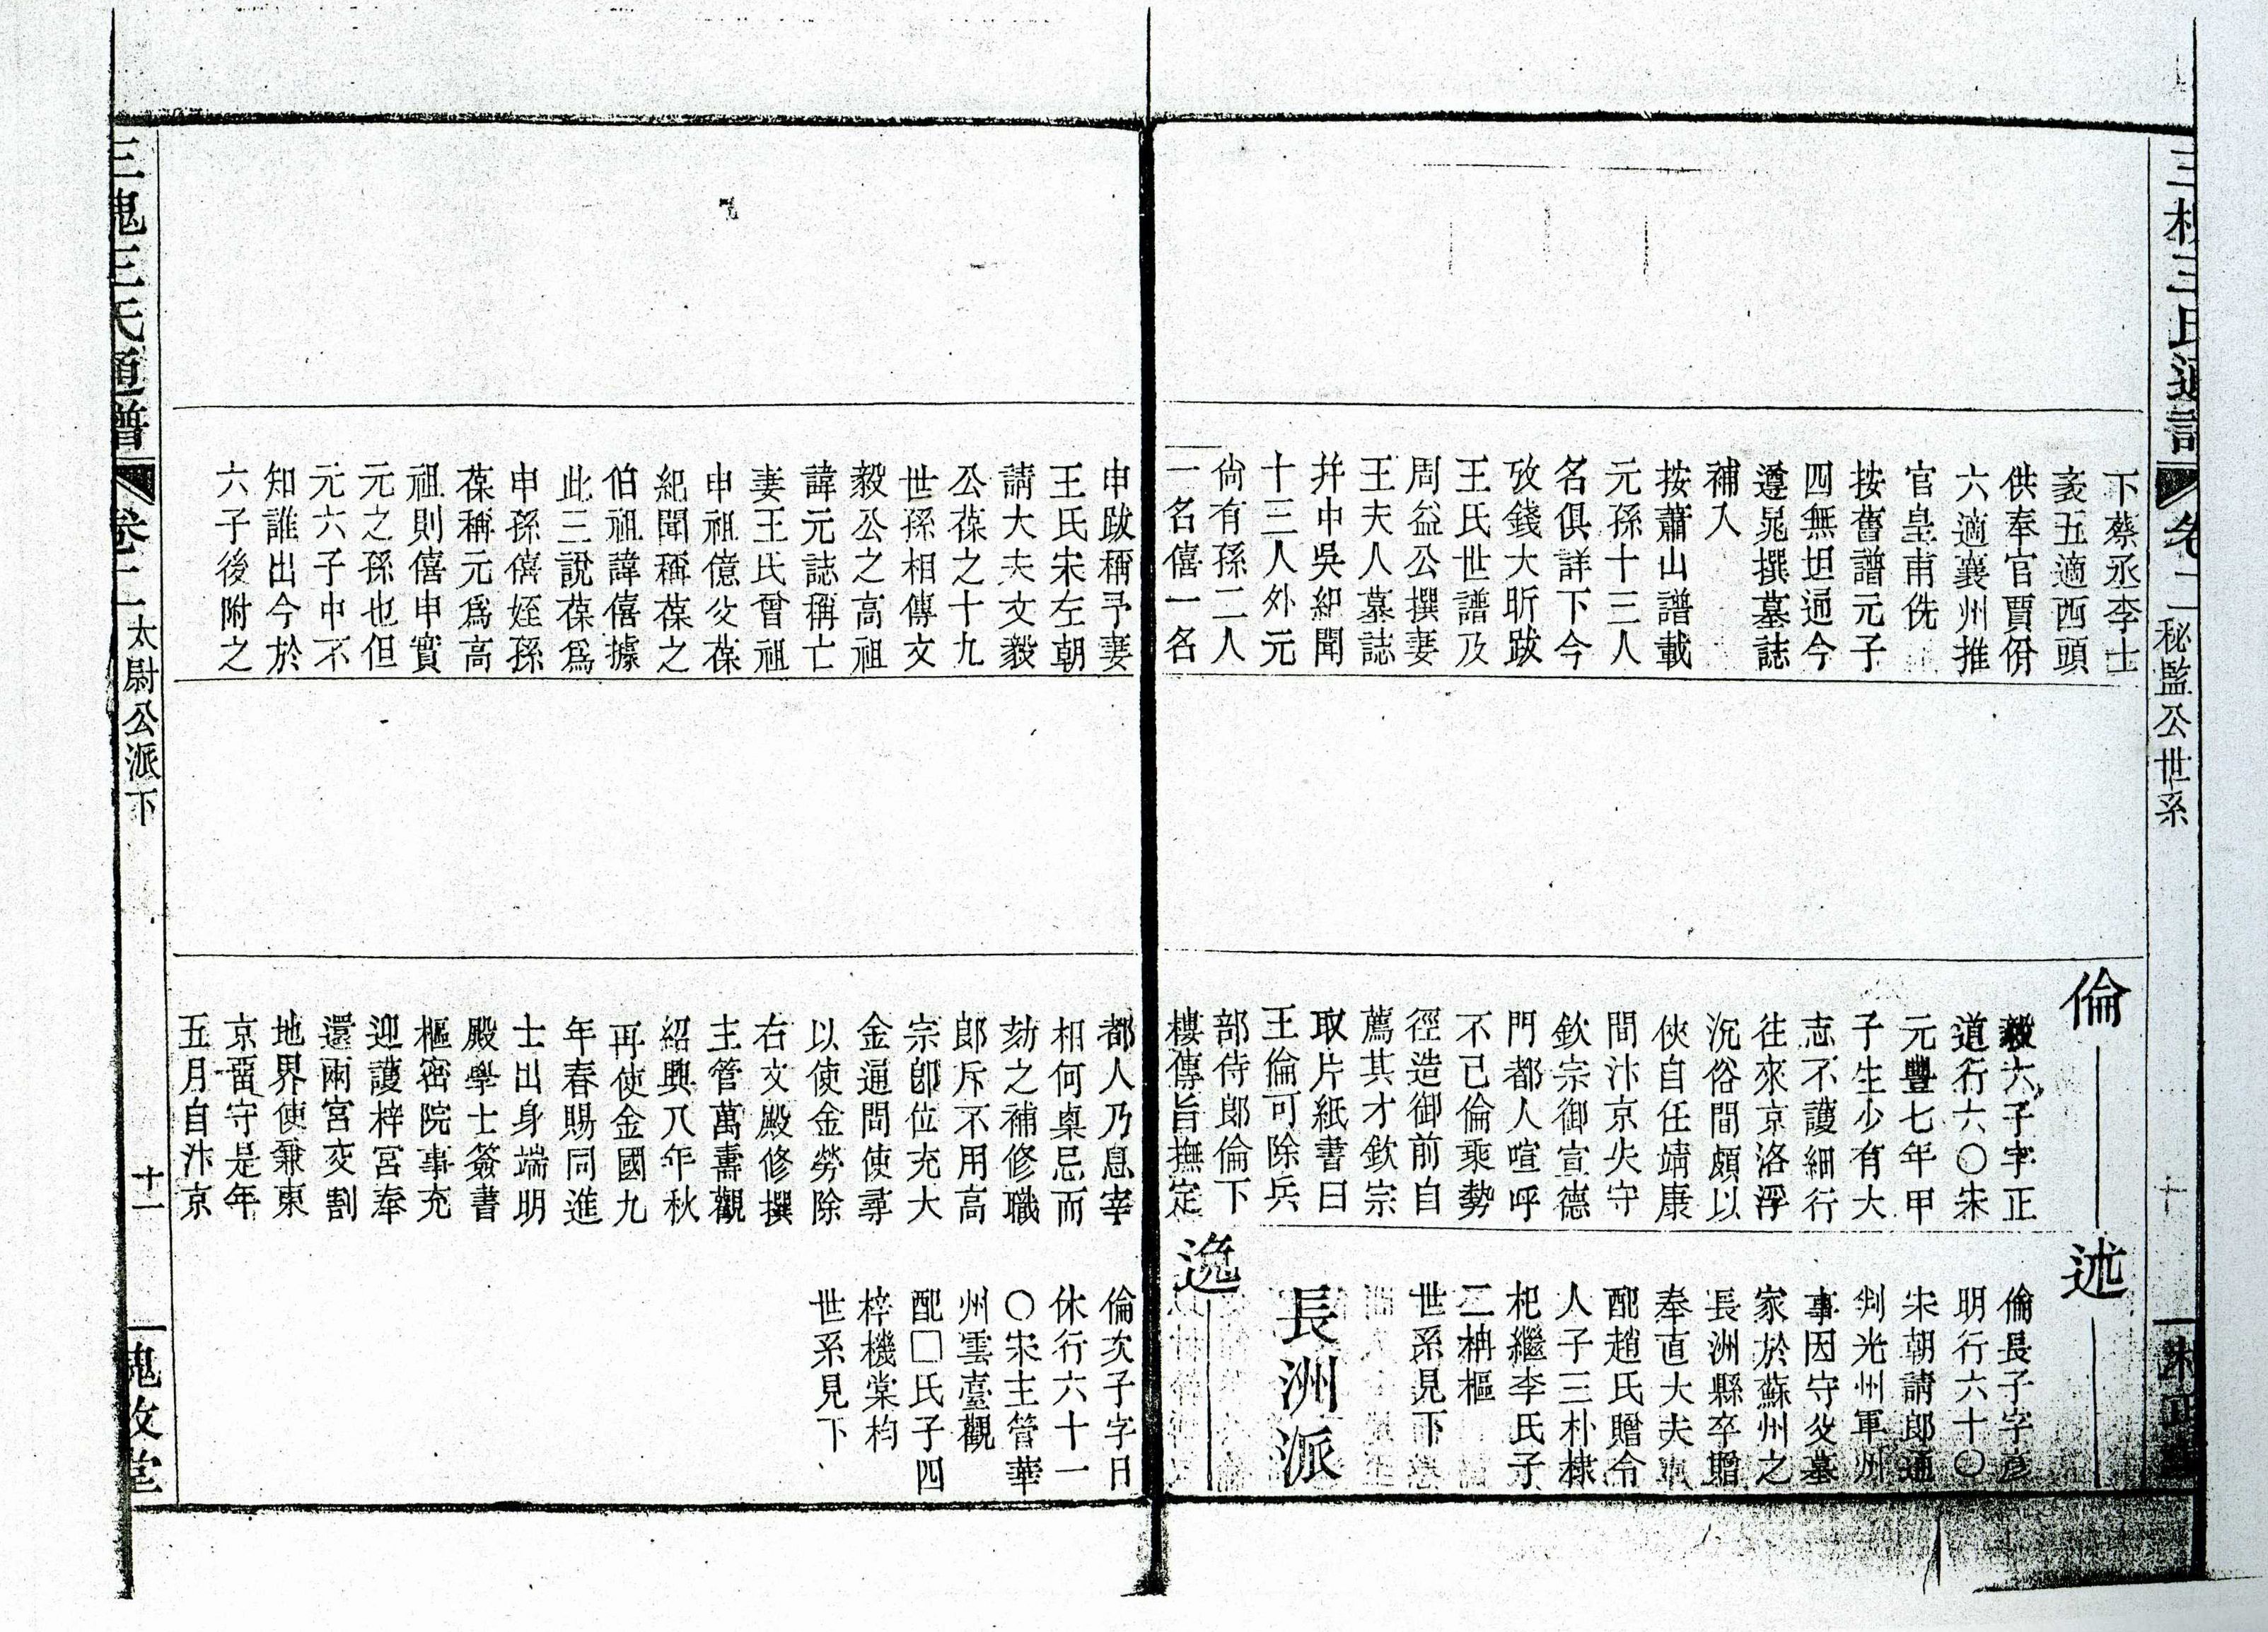 三槐王氏通譜
卷二
秘監公世系
十
下蔡丞李士
袤五適西頭
供奉官賈佾
六適襄州推
官皇甫侁
按舊譜元子
四無坦逼今
遵晁撰墓誌
補入
按蕭山譜載
元孫十三人
名俱詳下今
攷錢大昕跋
王氏世譜及
周益公撰妻
王夫人墓誌
幷中吳紀聞
十三人外元
尙有孫二人
一名僖一名
倫
毅六子字正
道行六〇宋
元豐七年甲
子生少有大
志不護細行
往來京洛浮
沉俗間頗以
俠自任靖康
間汴京失守
欽宗御宣德
門都人喧呼
不已倫乘勢
徑造御前自
薦其才欽宗
取片紙書曰
王倫可除兵
部侍郎倫下
樓傳旨撫定
述
倫長子字彥
明行六十〇
宋朝請郎通
判光州軍州
事因守父墓
家於蘇州之
長洲縣卒贈
奉直大夫
配趙氏贈令
人子三朴棣
杞繼李氏子
二柟樞
世系見下
長洲派
逸
申跋稱予妻
王氏宋左朝
請大夫文毅
公葆之十九
世孫相傳文
毅公之高祖
諱元誌稱亡
妻王氏曾祖
申祖億父葆
紀聞稱葆之
伯祖諱僖據
此三說葆爲
申孫僖姪孫
葆稱元爲高
祖則僖申實
元之孫也但
元六子中不
知誰出今於
六子後附之
都人乃息宰
相何㮚忌而
劾之補修職
郎斥不用高
宗卽位充大
金通問使尋
以使金勞除
右文殿修撰
主管萬壽觀
紹興八年秋
再使金國九
年春賜同進
士出身端明
殿學士簽書
樞密院事充
迎護梓宮奉
還兩宮交割
地界使兼東
京畱守是年
五月自汴京
倫次子字日
休行六十一
〇宋主管華
州雲臺觀
配□氏子四
梓機棠枃
世系見下
三槐王氏通譜
卷二
太尉公派下
十一
槐政堂